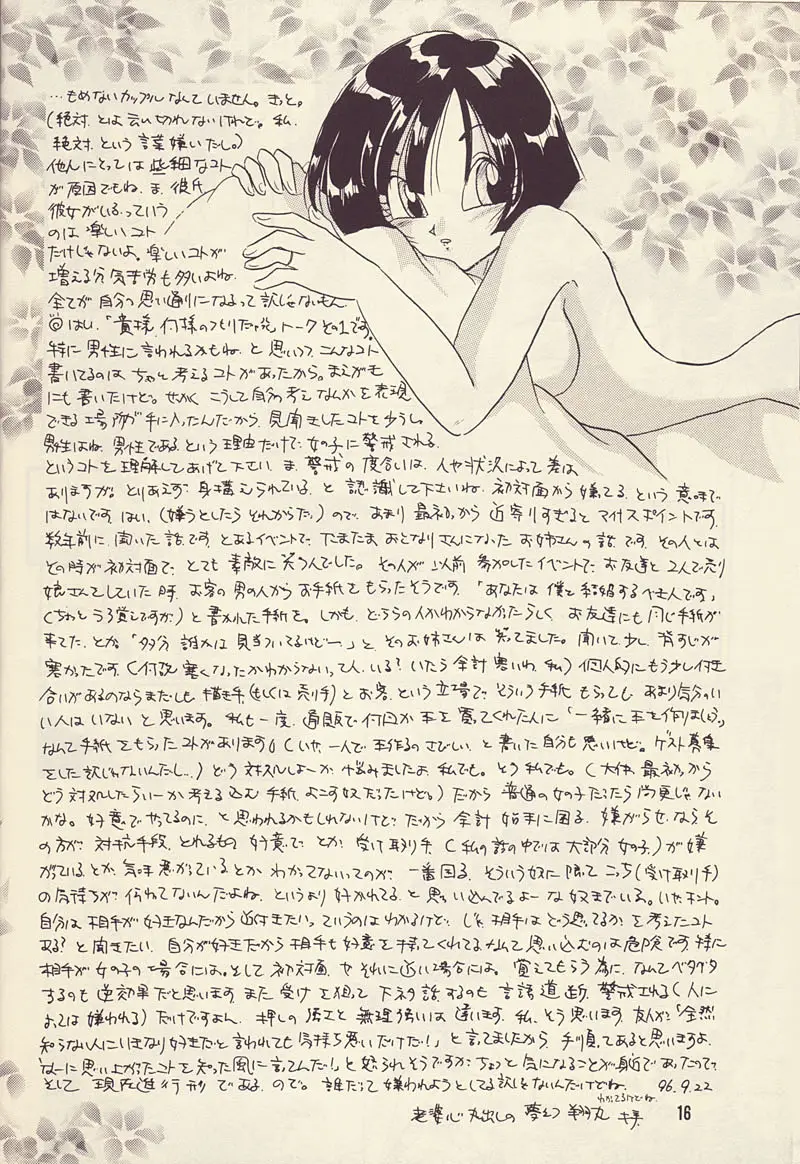 …もめないカップルなんていません。きっと。
(絶対とは云い切れないけれど。私、
絶対、という言葉嫌いだし。)
他人にとっては些細なコト
が原因でもね。ま、彼氏
彼女がいるっていう
のは楽しいコト
だけじゃないよ。楽しいコトが
増える分気苦労も多いよね。
全てが自分の思い通りになるって訳じゃないもん。
はい、「貴様何様のつもりだっ花トークその1です。
特に男性に言われるかもね、と思いつつ、こんなコト
書いてるのは ちゃんと考えるコトがあったから。まえがき
にも書いたけど。せっかく こうして自分の考えなんかを表現
できる場所が手に入ったんだから、見聞きしたコトを少し。
男性はね、男性である という理由だけで、女の子に警戒される。
というコトを理解してあげて下さい。ま、警戒の度合いは、人や状況によって差は
ありますが。とりあえず、身構えられている、と認識して下さいね。初対面から嫌ってる、という意味で
はないです。はい、(嫌うとしたらそれからだ。)ので、あまり最初から近寄りすぎるとマイナスポイントです。
数年前に、聞いた話です。とあるイベントで、たまたまおとなりさんになったお姉さんの話です。その人とは
その時が初対面で、とても素敵に笑う人でした。その人が以前参加したイベントで、お友達と2人で売り
娘さんをしていた時、お客の男の人からお手紙をもらったそうです。「あなたは僕と結婚するべき人です」
(ちょっとうろ覚えですが)と書かれた手紙を。しかも、どちらの人かわからなかったらしく お友達にも同じ手紙が
来てた、とか。「多分 誰かは見当ついてるけどー。」と、そのお姉さんは笑ってました。聞いて少し、背すじが
寒かったです。(何故寒くなったかわからないって人、いる?いたら余計寒いわ、私)個人的にもう少し付き
合いがあるのならまだしも 描き手(もしくは売り手)とお客、という立場で、そういう手紙もらっても、あまり気分のい
い人はいないと思います。私も一度、通販で何回か本を買ってくれた人に「一緒に本を作りましょう。」
なんて手紙をもらったコトがあります。(いや、一人で本作るのさびしい、と書いた自分も悪いけど。ゲスト募集
をした訳じゃないんだし…)どう対処しよーか悩みましたよ、私でも。そう私でも。(大体、最初から
どう対処したらいーか考え込む手紙、よこす奴だったけど。)だから普通の女の子だったら尚更じゃない
かな。好意でやってるのに、と思われるかもしれないけど、だから余計始末に困る。嫌がらせならそ
の方が対抗手段、とれるもの。好意で、とか、受け取り手(私の話の中では大部分女の子。)が嫌
がっているとか、気味悪がっているとかわかってないってのが、一番困る。そういう奴に限って こっち(受け取り手)
の気持ちが伝わってないんだよね、というより好かれてると思い込んでるよーな奴までいる。いや、ホント。
自分は相手が好きなんだから近付きたい、っていうのはわかるけど、じゃ、相手はどう思ってるかを考えたコト
ある?と聞きたい。自分が好きだから相手も好意を持ってくれてる、なんて思い込むのは危険です。特に
相手が女の子の場合には。そして 初対面、やそれに近い場合には。覚えてもらう為に、なんてベタベタ
するのも逆効果だと思います。また受けを狙って下ネタ話するのも言語道断。警戒される(人に
よっては嫌われる)だけですよん。押しの強さと無理強いは違います。私、そう思います。友人が「全然
知らない人にいきなり好きだと言われても気持ち悪いだけだ!」と言ってましたから、手順ってあると思いますよ。
「なーに思い上がったコトを知った風に言ってんだ!」と怒られそうですが、ちょっと気になることが身近であったので、
そして 現在進行形である。ので。誰だって嫌われようとしてる訳じゃないんだけどね。
わかってるけどね。
96.9.22
老婆心丸出しの 夢幻 翔丸
16